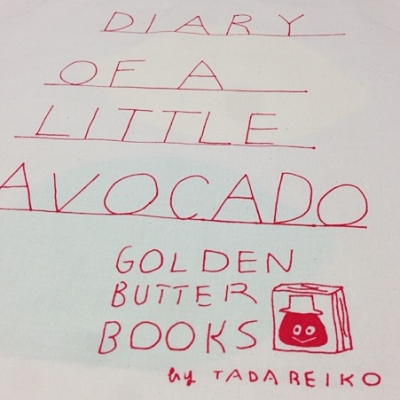 DIARY
OF A
LITTLE
AVOCADO
GOLDEN
BUTTER
BOOKS
by TADAREIKO